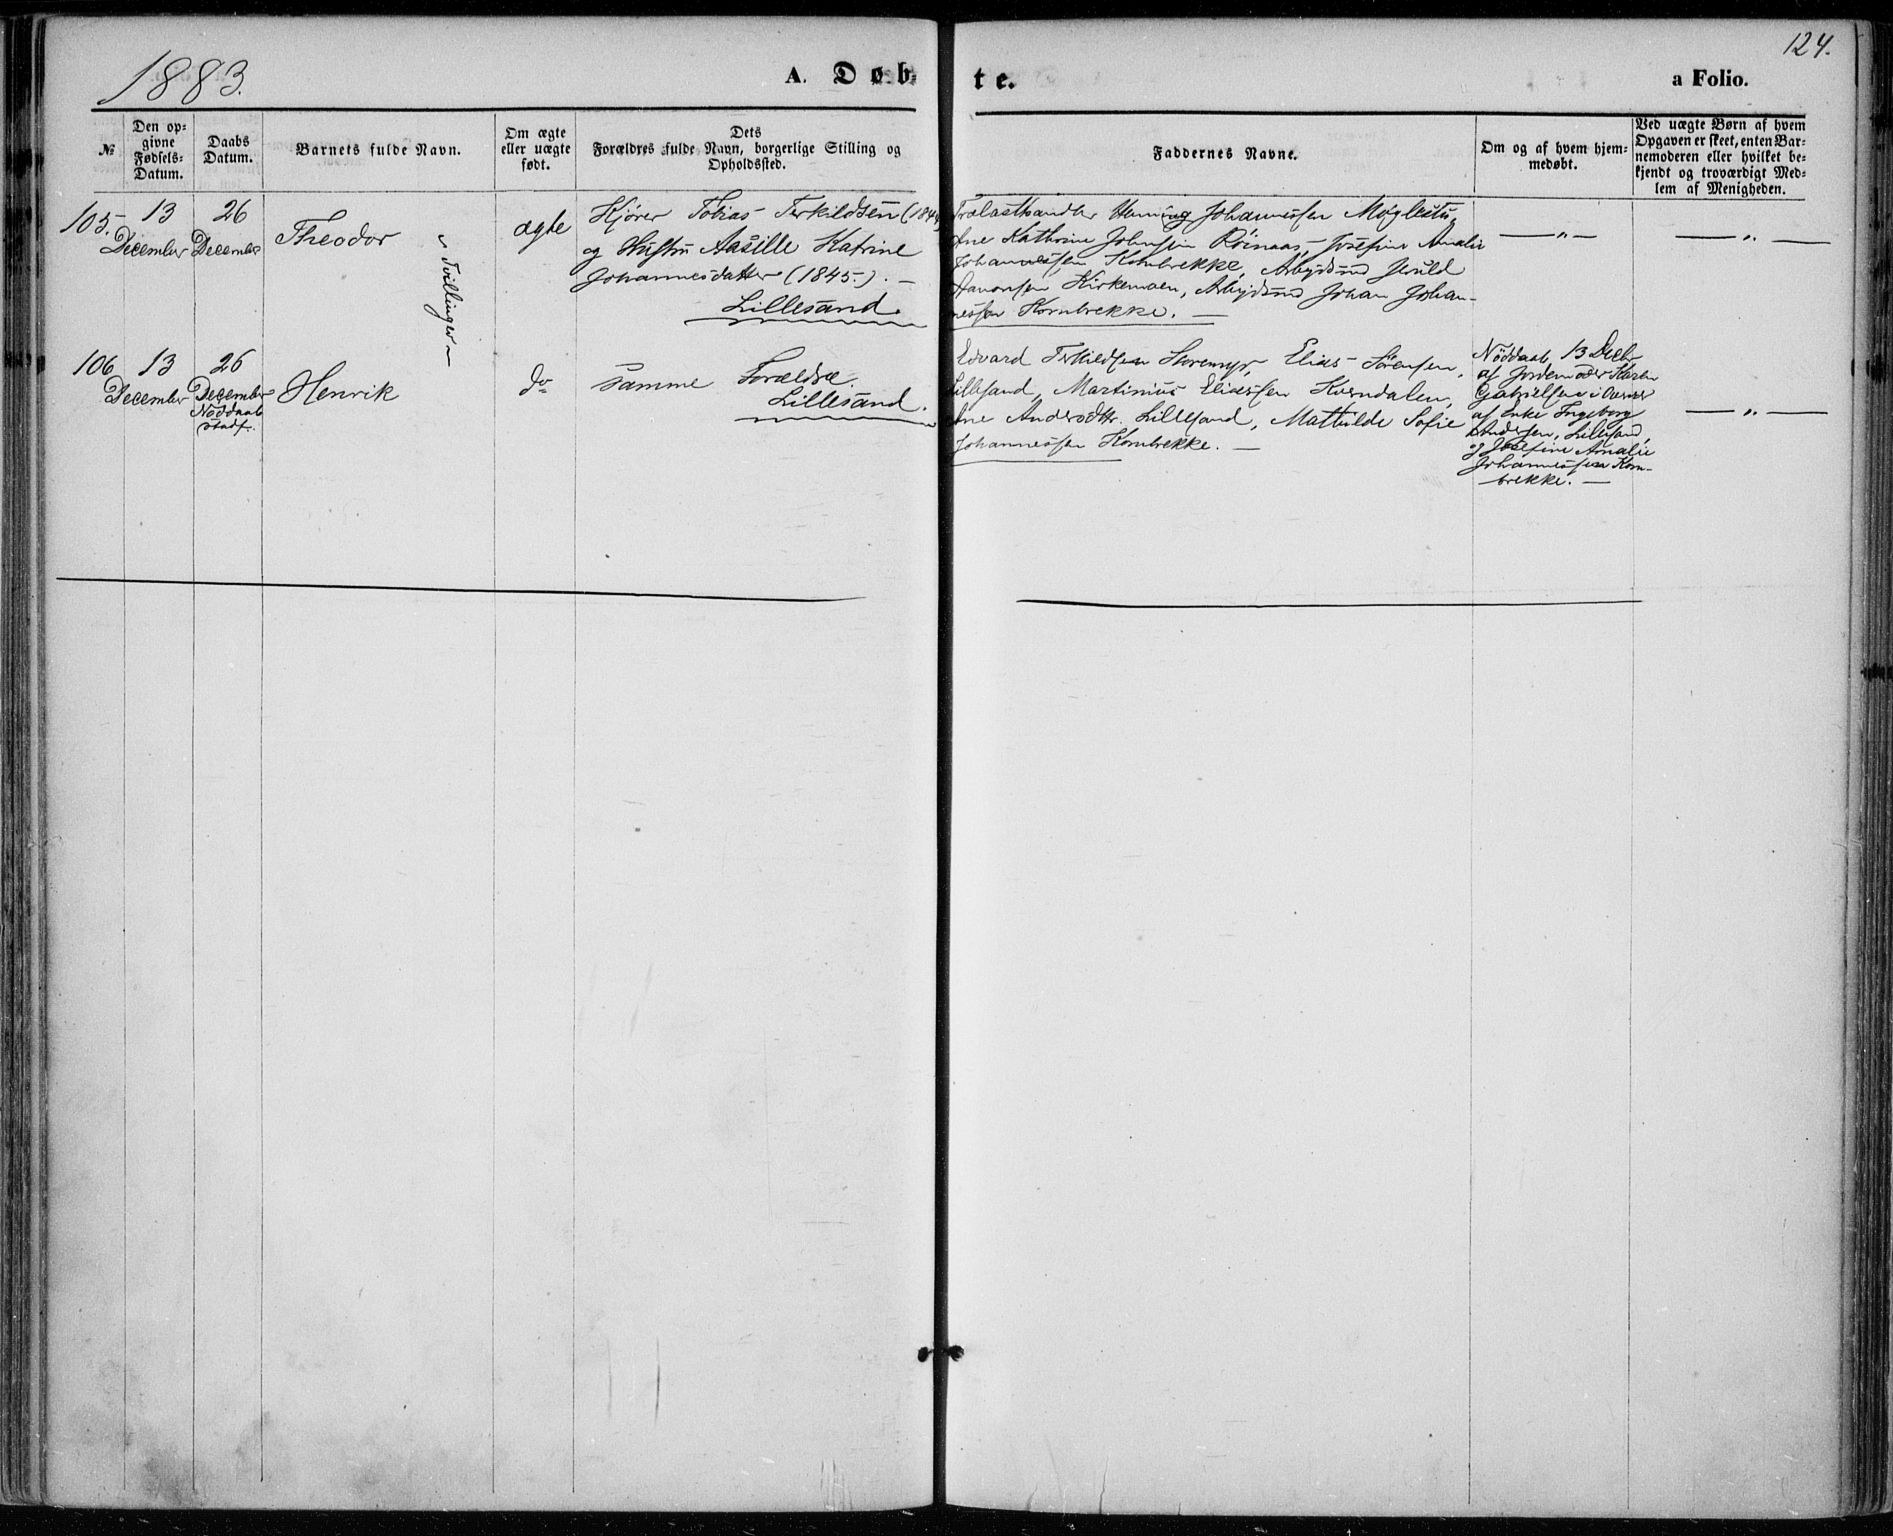 1883.
A. Døb-
te.
a Folio.
124.
№
Den op-
givne
Fødsels-
Datum.
Daabs
Datum.
Barnets fulde Navn.
Om ægte
eller uægte
født.
Dets
Forældres fulde Navn, borgerlige Stilling og
Opholdssted.
Faddernes Navne.
Om og af hvem hjem-
medøbt.
Ved uægte Børn af hvem
Opgaven er skeet, enten Bar-
nemoderen eller hvilket be-
kjendt og troværdigt Med-
lem af Menigheden.
105.
13
December
26
December
Theodor
Tvillinger
ægte
Kjører Tobias Terkildsen (184
og Hustru Aasille Katrine
Johannesdatter (1845). —
Lillesand
Trælasthandler Henning Johannessen Møglestu,
Ane Kathrine Johnsen Röinaas, Josefine Amalie
Johannessen Kornbrekke, Arbejdsmd
Aanonsen Kirkemoen, Arbejdsmd Johan Johan-
nessen Kornbrekke. —
— „ —
— „ —
106
13
December
26
December
Nøddaab
stadf.
Henrik
do
samme Forældre.
Lillesand.
Edvard Terkildsen, Elias Sørensen,
Lillesand, Martinius Eliassen Kverndalen,
Ane Andersdtr. Lillesand, Mathilde Sofie
Johannessen Kornbrekke. —
Nøddaab 13 Decbr
af Jordemoder Karen
Gabrielsen i Overvær
af Enke Ingeborg
Andersen, Lillesand,
og Josefine Amalie
Johannessen Korn-
brekke. —
— „ —